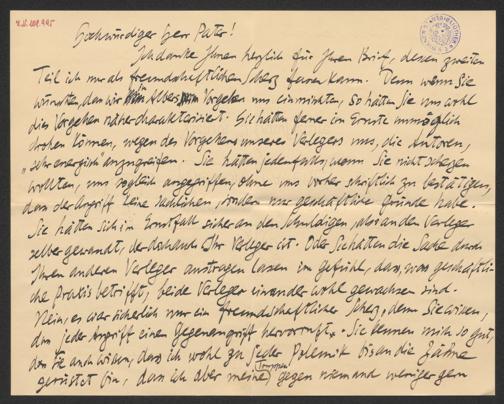 Hochwürdiger Herr Pater!
Ich danke Ihnen herzlich für Ihren Brief, dessen zweiten
Teil ich nur als freundschaftlichen Scherz fassen kann. Denn wenn Sie
wünschten, dass wir Albers Vorgehen uns einmischten, so hätten Sie uns wohl
dies Vorgehen näher charakterisiert. Sie hätten ferner im Ernste unmöglich
drohen können, wegen des Vorgehens unseres Verlegers uns, die Autoren,
„sehr energisch anzugreifen. Sie hätten jedenfalls, wenn Sie nicht scherzen
wollten, uns sogleich angegriffen, ohne uns vorher schriftlich zu bestätigen,
dass der Angriff keine sachlichen, sondern nur geschäftliche Gründe habe.
Sie hätten sich im Ernstfall sicher an den Schuldigen, also an den Verleger
selber gewandt, der doch auch Ihr Verleger ist. Oder Sie hätten die Sache durch
Ihren anderen Verleger austragen lassen im Gefühl, dass, was geschäftli-
che Praxis betrifft, beide Verleger einander wohl gewachsen sind.
Nein, es war sicherlich nur ein freundschaftlicher Scherz, denn Sie wissen,
dass jeder Angriff einen Gegenangriff hervorruft. Sie kennen mich so gut,
dass Sie auch wissen, dass ich wohl zu jeder Polemik bis an die Zähne
gerüstet bin, dass ich aber meine Truppen gegen niemand weniger gern